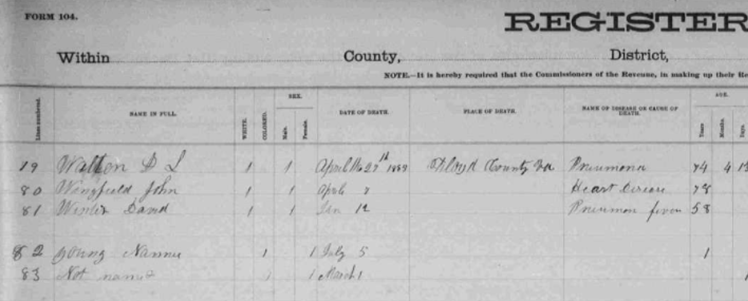 FORM 104.
REGISTER
Within County, District,
NOTE.—It is hereby required that the Commissioners of the Revenue, in making up their Re
Lines numbered. NAME IN FULL. WHITE. COLORED. SEX. Male. Female. DATE OF DEATH. PLACE OF DEATH. NAME OF DISEASE OR CAUSE OF DEATH. AGE. Years Months. Days.
79 Walton D L 1 1 April 27th 1889 Floyd County Va Pneumona 74 4
80 Wingfield John 1 1 April 8 Heart 78
81 David 1 1 Jan 12 58
82 Young Nannie 1 1 July 5 1
83 Not name 1 1 March 1